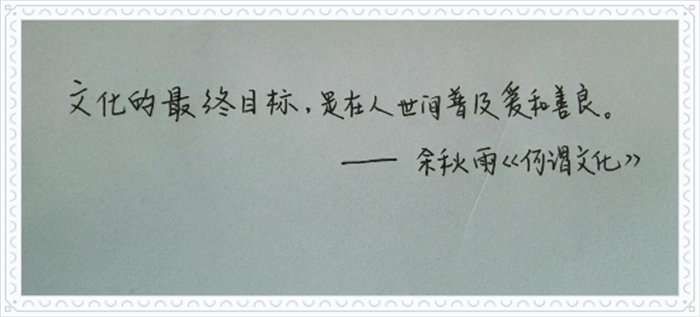 文化的最终目标，是在人世间普及爱和善良。
—— 余秋雨《何谓文化》